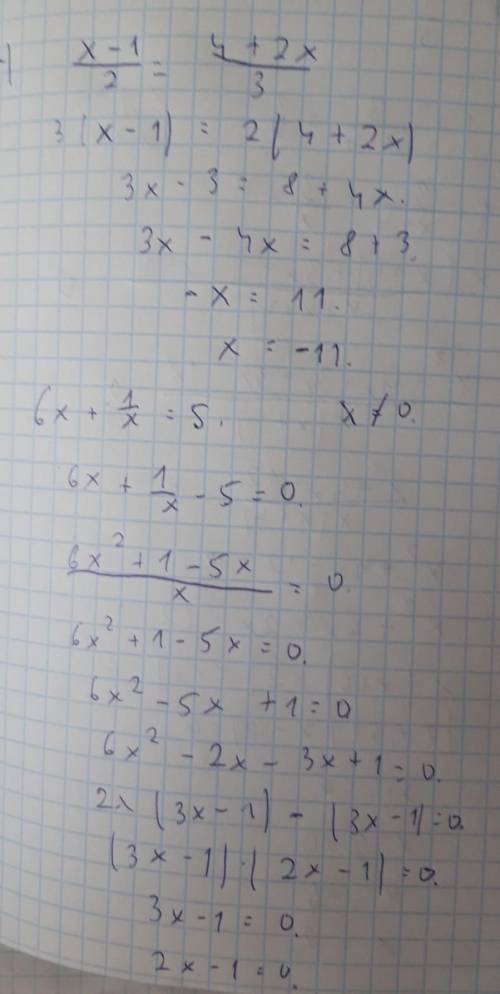 x - 1 / 2 = 4 + 2x / 3
3(x - 1) = 2(4 + 2x)
3x - 3 = 8 + 4x.
3x - 4x = 8 + 3.
- x = 11.
x = -11.
6x + 1/x = 5. x ≠ 0.
6x + 1/x - 5 = 0.
6x² + 1 - 5x / x = 0.
6x² + 1 - 5x = 0.
6x² - 5x + 1 = 0
6x² - 2x - 3x + 1 = 0.
2x (3x - 1) - (3x - 1) = 0.
(3x - 1) · (2x - 1) = 0.
3x - 1 = 0.
2x - 1 = 0.